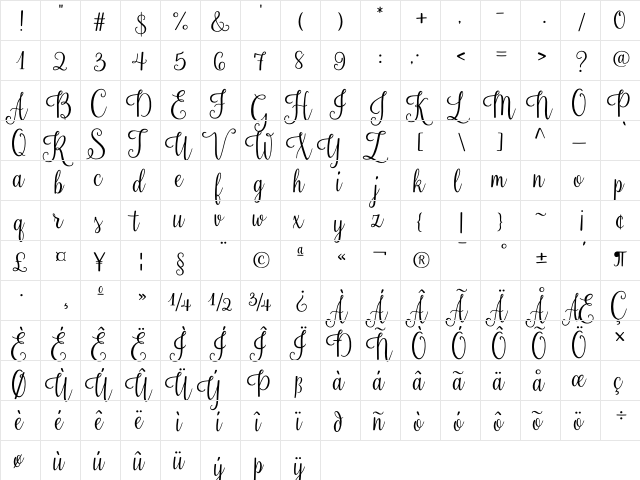 ! " # $ % & ' ( ) * + , - . / 0
1 2 3 4 5 6 7 8 9 : ; < = > ? @
A B C D E F G H I J K L M N O P
Q R S T U V W X Y Z [ \ ] ^ _ `
a b c d e f g h i j k l m n o p
q r s t u v w x y z { | } ~ ¡ ¢
£ ¤ ¥ ¦ § ¨ © ª « ¬ ® ¯ ° ± ´ ¶
· ¸ º » 1/4 1/2 3/4 ¿ À Á Â Ã Ä Å Æ Ç
È É Ê Ë Ì Í Î Ï Ð Ñ Ò Ó Ô Õ Ö ×
Ø Ù Ú Û Ü Ý Þ ß à á â ã ä å æ ç
è é ê ë ì í î ï ð ñ ò ó ô õ ö ÷
ø ù ú û ü ý þ ÿ